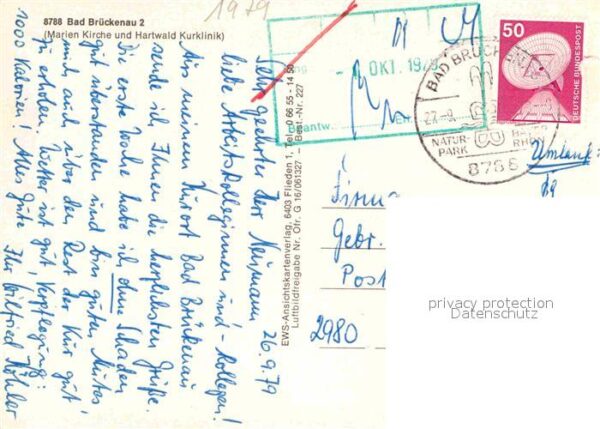 1979
8788 Bad Brückenau 2
(Marien Kirche und Hartwald Kurklinik)
26.9.79
Sehr geehrter Herr Neumann,
liebe Arbeitskolleginnen und -Kollegen!
Aus meinem Kurort Bad Brückenau
sende ich Ihnen die herzlichsten Grüße.
Die erste Woche habe ich ohne Schaden
gut überstanden und bin guten Mutes
mich auch über den Rest der Kur gut
zu erholen. Wetter ist gut, Verpflegung:
1000 Kalorien! Alles Gute
Ihr Wilfried Köhler
EWS-Ansichtskartenverlag, 6403 Flieden 1, Tel. 0 66 55 - 14 50
Luftbildfreigabe Nr. Ofr. G 16/061327 Best.-Nr. 227
OKT. 1979
Beantw.
BAD BRÜCKEN
27.-9.
NATUR-
PARK
RHÖN
8788
50
DEUTSCHE BUNDESPOST
Umlauf
Firma
Gebr.
Post
2980
privacy protection
Datenschutz